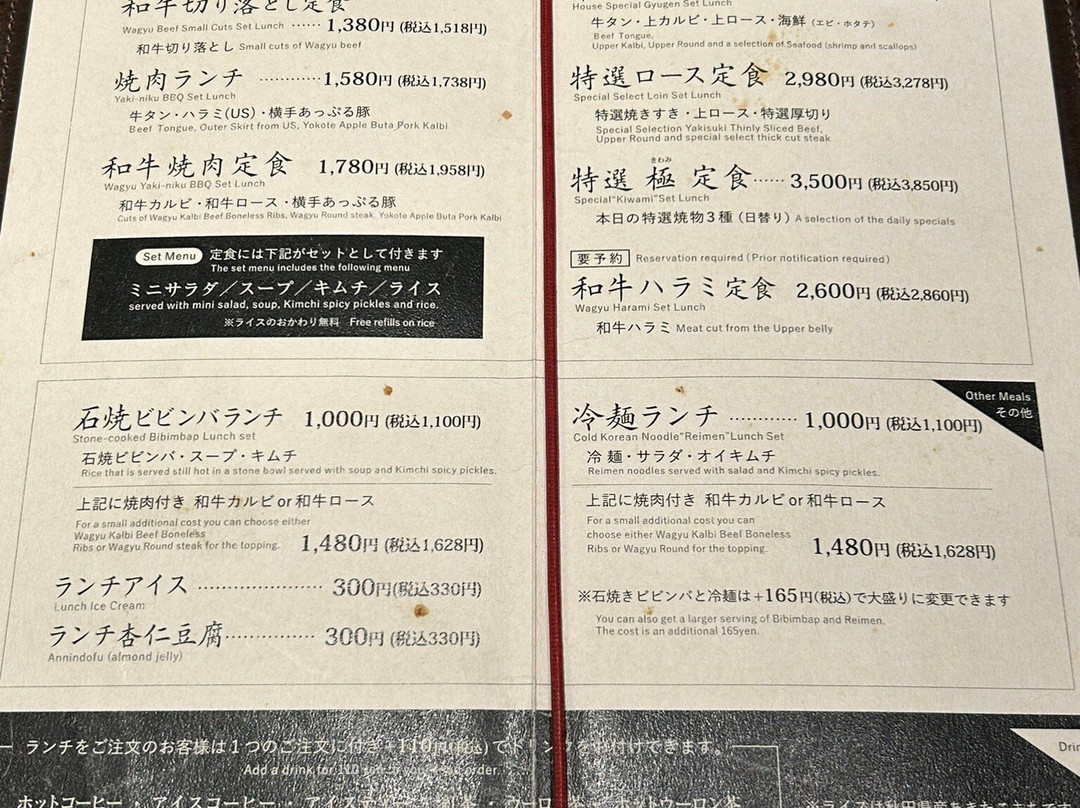 和牛切り落とし定食
Wagyu Beef Small Cuts Set Lunch ······ 1,380円 (税込1,518円)
和牛切り落とし Small cuts of Wagyu beef
焼肉ランチ ············ 1,580円 (税込1,738円)
Yaki-niku BBQ Set Lunch
牛タン・ハラミ(US)・横手あっぷる豚
Beef Tongue, Outer Skirt from US, Yokote Apple Buta Pork Kalbi
和牛焼肉定食 1,780円 (税込1,958円)
Wagyu Yaki-niku BBQ Set Lunch
和牛カルビ・和牛ロース・横手あっぷる豚
Cuts of Wagyu Kalbi Beef Boneless Ribs, Wagyu Round steak, Yokote Apple Buta Pork Kalbi
Set Menu 定食には下記がセットとして付きます
The set menu includes the following menu
ミニサラダ／スープ／キムチ／ライス
served with mini salad, soup, Kimchi spicy pickles and rice.
※ライスのおかわり無料 Free refills on rice
House Special Gyugen Set Lunch
牛タン・上カルビ・上ロース・海鮮 (エビ・ホタテ)
Beef Tongue,
Upper Kalbi, Upper Round and a selection of Seafood (shrimp and scallops)
特選ロース定食 2,980円 (税込3,278円)
Special Select Loin Set Lunch
特選焼きすき・上ロース・特選厚切り
Special Selection Yakisuki Thinly Sliced Beef,
Upper Round and special select thick cut steak
きわみ
特選 極 定食 ······ 3,500円 (税込3,850円)
Special"Kiwami"Set Lunch
本日の特選焼物3種 (日替り) A selection of the daily specials
要予約 Reservation required (Prior notification required)
和牛ハラミ定食 2,600円 (税込2,860円)
Wagyu Harami Set Lunch
和牛ハラミ Meat cut from the Upper belly
石焼ビビンバランチ 1,000円 (税込1,100円)
Stone-cooked Bibimbap Lunch set
石焼ビビンバ・スープ・キムチ
Rice that is served still hot in a stone bowl served with soup and Kimchi spicy pickles.
上記に焼肉付き 和牛カルビ or 和牛ロース
For a small additional cost you can choose either
Wagyu Kalbi Beef Boneless
Ribs or Wagyu Round steak for the topping. 1,480円 (税込1,628円)
ランチアイス ····················· 300円(税込330円)
Lunch Ice Cream
ランチ杏仁豆腐 ··············· 300円 (税込330円)
Annindofu (almond jelly)
Other Meals
その他
冷麺ランチ ············ 1,000円 (税込1,100円)
Cold Korean Noodle"Reimen"Lunch Set
冷麺・サラダ・オイキムチ
Reimen noodles served with salad and Kimchi spicy pickles.
上記に焼肉付き 和牛カルビ or 和牛ロース
For a small additional cost you can
choose either Wagyu Kalbi Beef Boneless
Ribs or Wagyu Round for the topping. 1,480円 (税込1,628円)
※石焼きビビンバと冷麺は+165円(税込)で大盛りに変更できます
You can also get a larger serving of Bibimbap and Reimen.
The cost is an additional 165yen.
ランチをご注文のお客様は1つのご注文に付き+110円(税込)でドリンクをお付けできます。
Add a drink for 110 order.
ホットコーヒー ・ アイスコーヒー ・